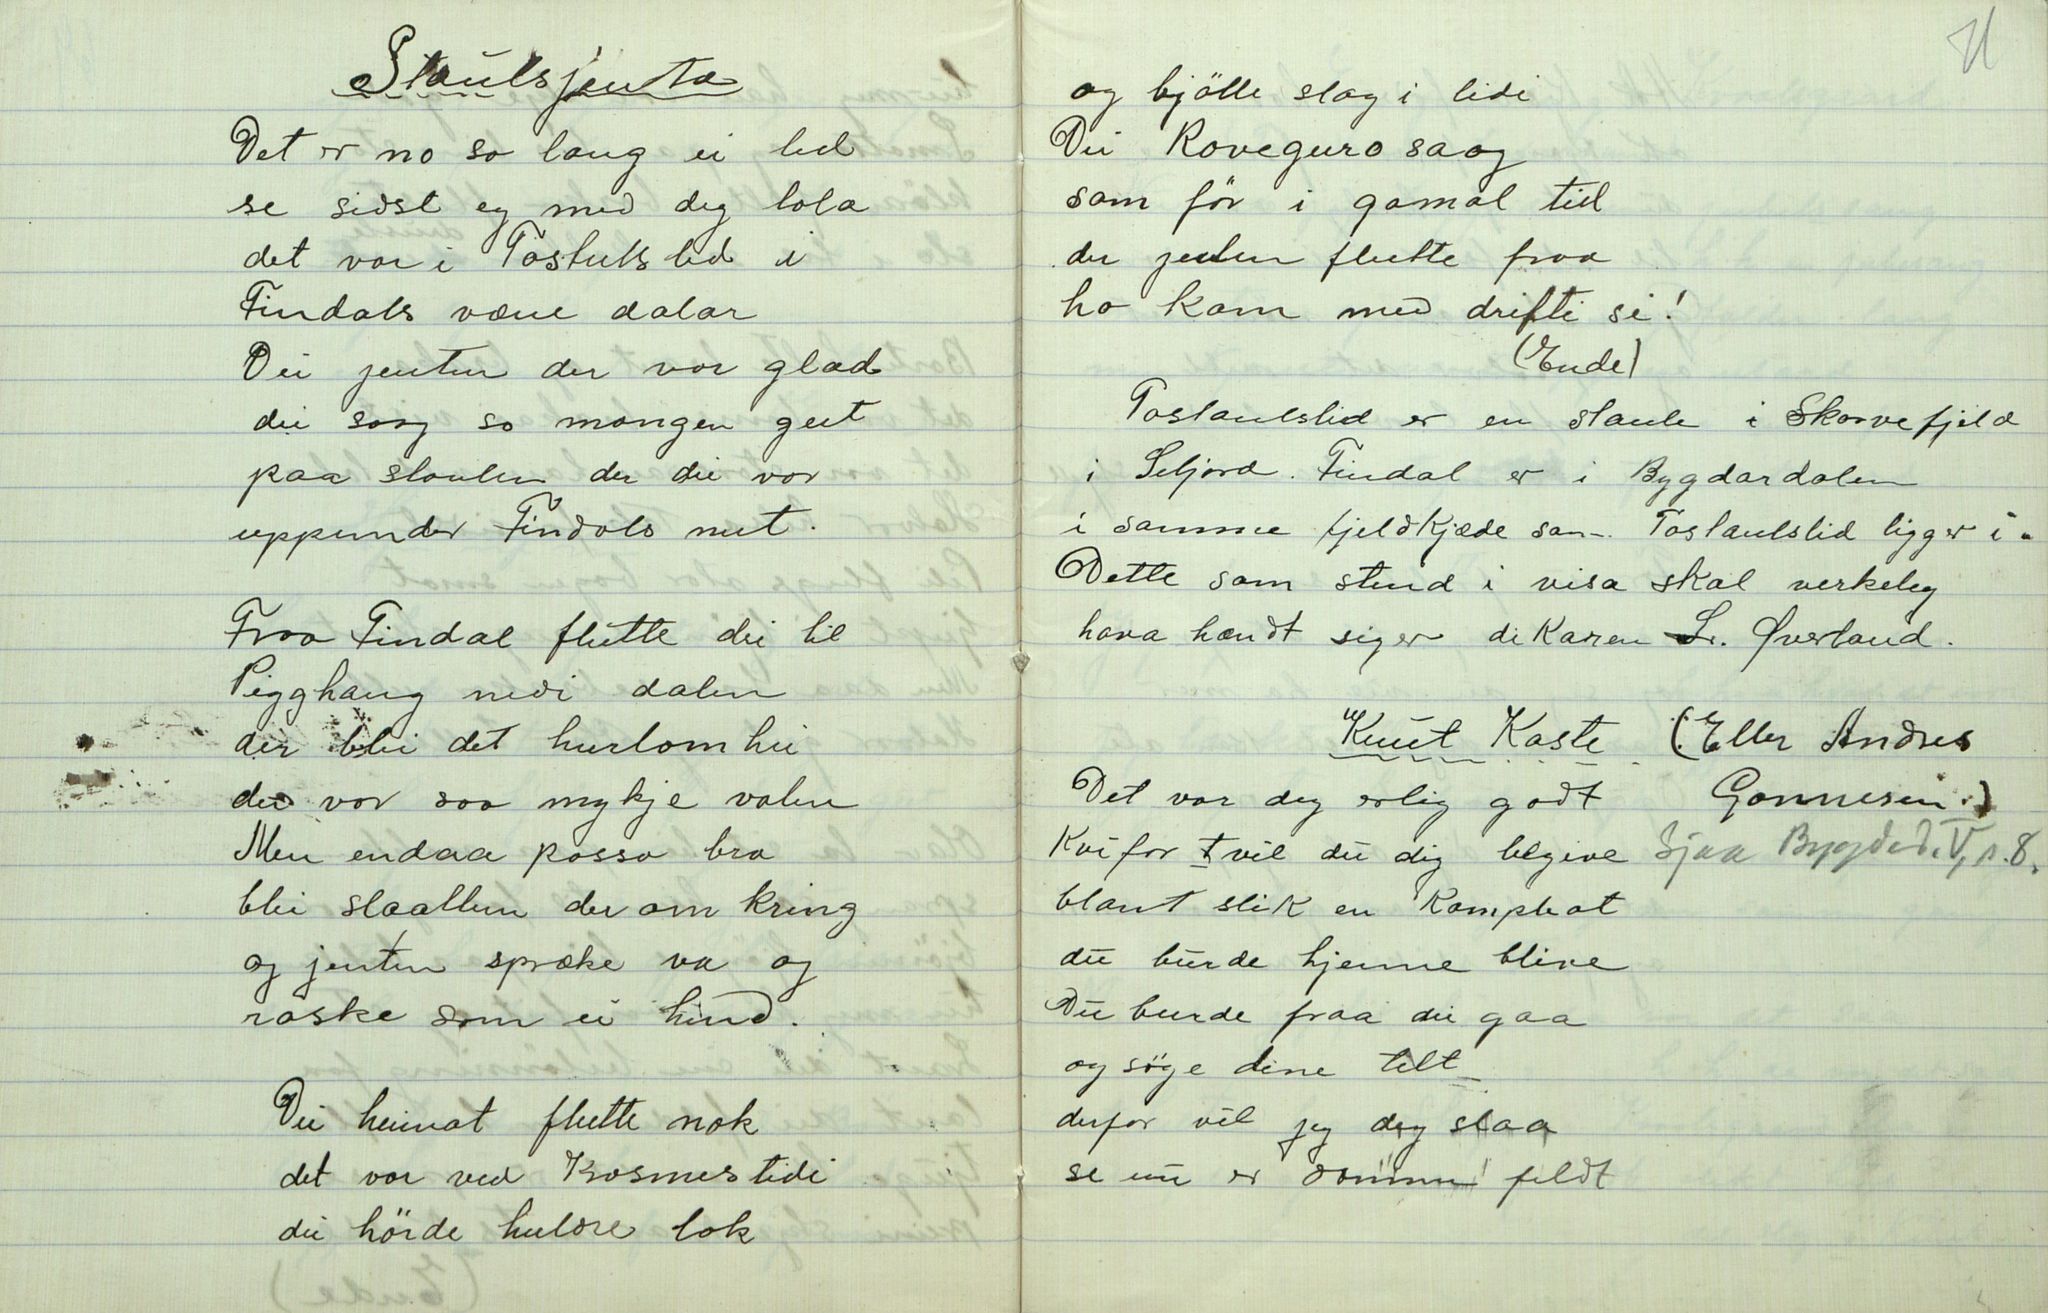 Staulsjenta
Det er no so lang ei tid
se sidst eg med deg tola
det var i Tostulslid i
Findals væne dalar
Dei jenten der var glad
dei song so mangen gut
paa staulen der dei var
uppunder Findals nut.
Fraa Findal flutte dei til
Pigghaug nedi dalen
der blei det hurlomhei
dei var saa mykje valen
Men endaa passa bra
blei slaatten der omkring
og jenten spræke va og
raske som ei hind.
Dei heimat flutte nok
det var ved Krosmestidi
dei hörde huldre lok
11
og bjölle slag i lidi
Dei Roveguro saag
som för i gamal tid
der jenten flutte fraa
ho kom med drifti si!
(Ende)
Tostaulslid er en staule i Skorvefjeld
i Seljord. Findal er i Bygdardalen
i samme fjeldkjæde som Tostaulslid ligger i.
Dette som stend i visa skal verkeleg
hava hændt siger di Karen Sr. Øverland.
Knut Kaste (Eller Andres
Gonnesen.)
Det var deg erlig godt
Kvifor vil du dig begive
Sjaa Bygded. V, s. 8.
blant slik en Kamphat
du burde hjemme blive
Du burde fraa dei gaa
og söge dine telt
derfor vil jeg deg slaa
se nu er dommen feldt